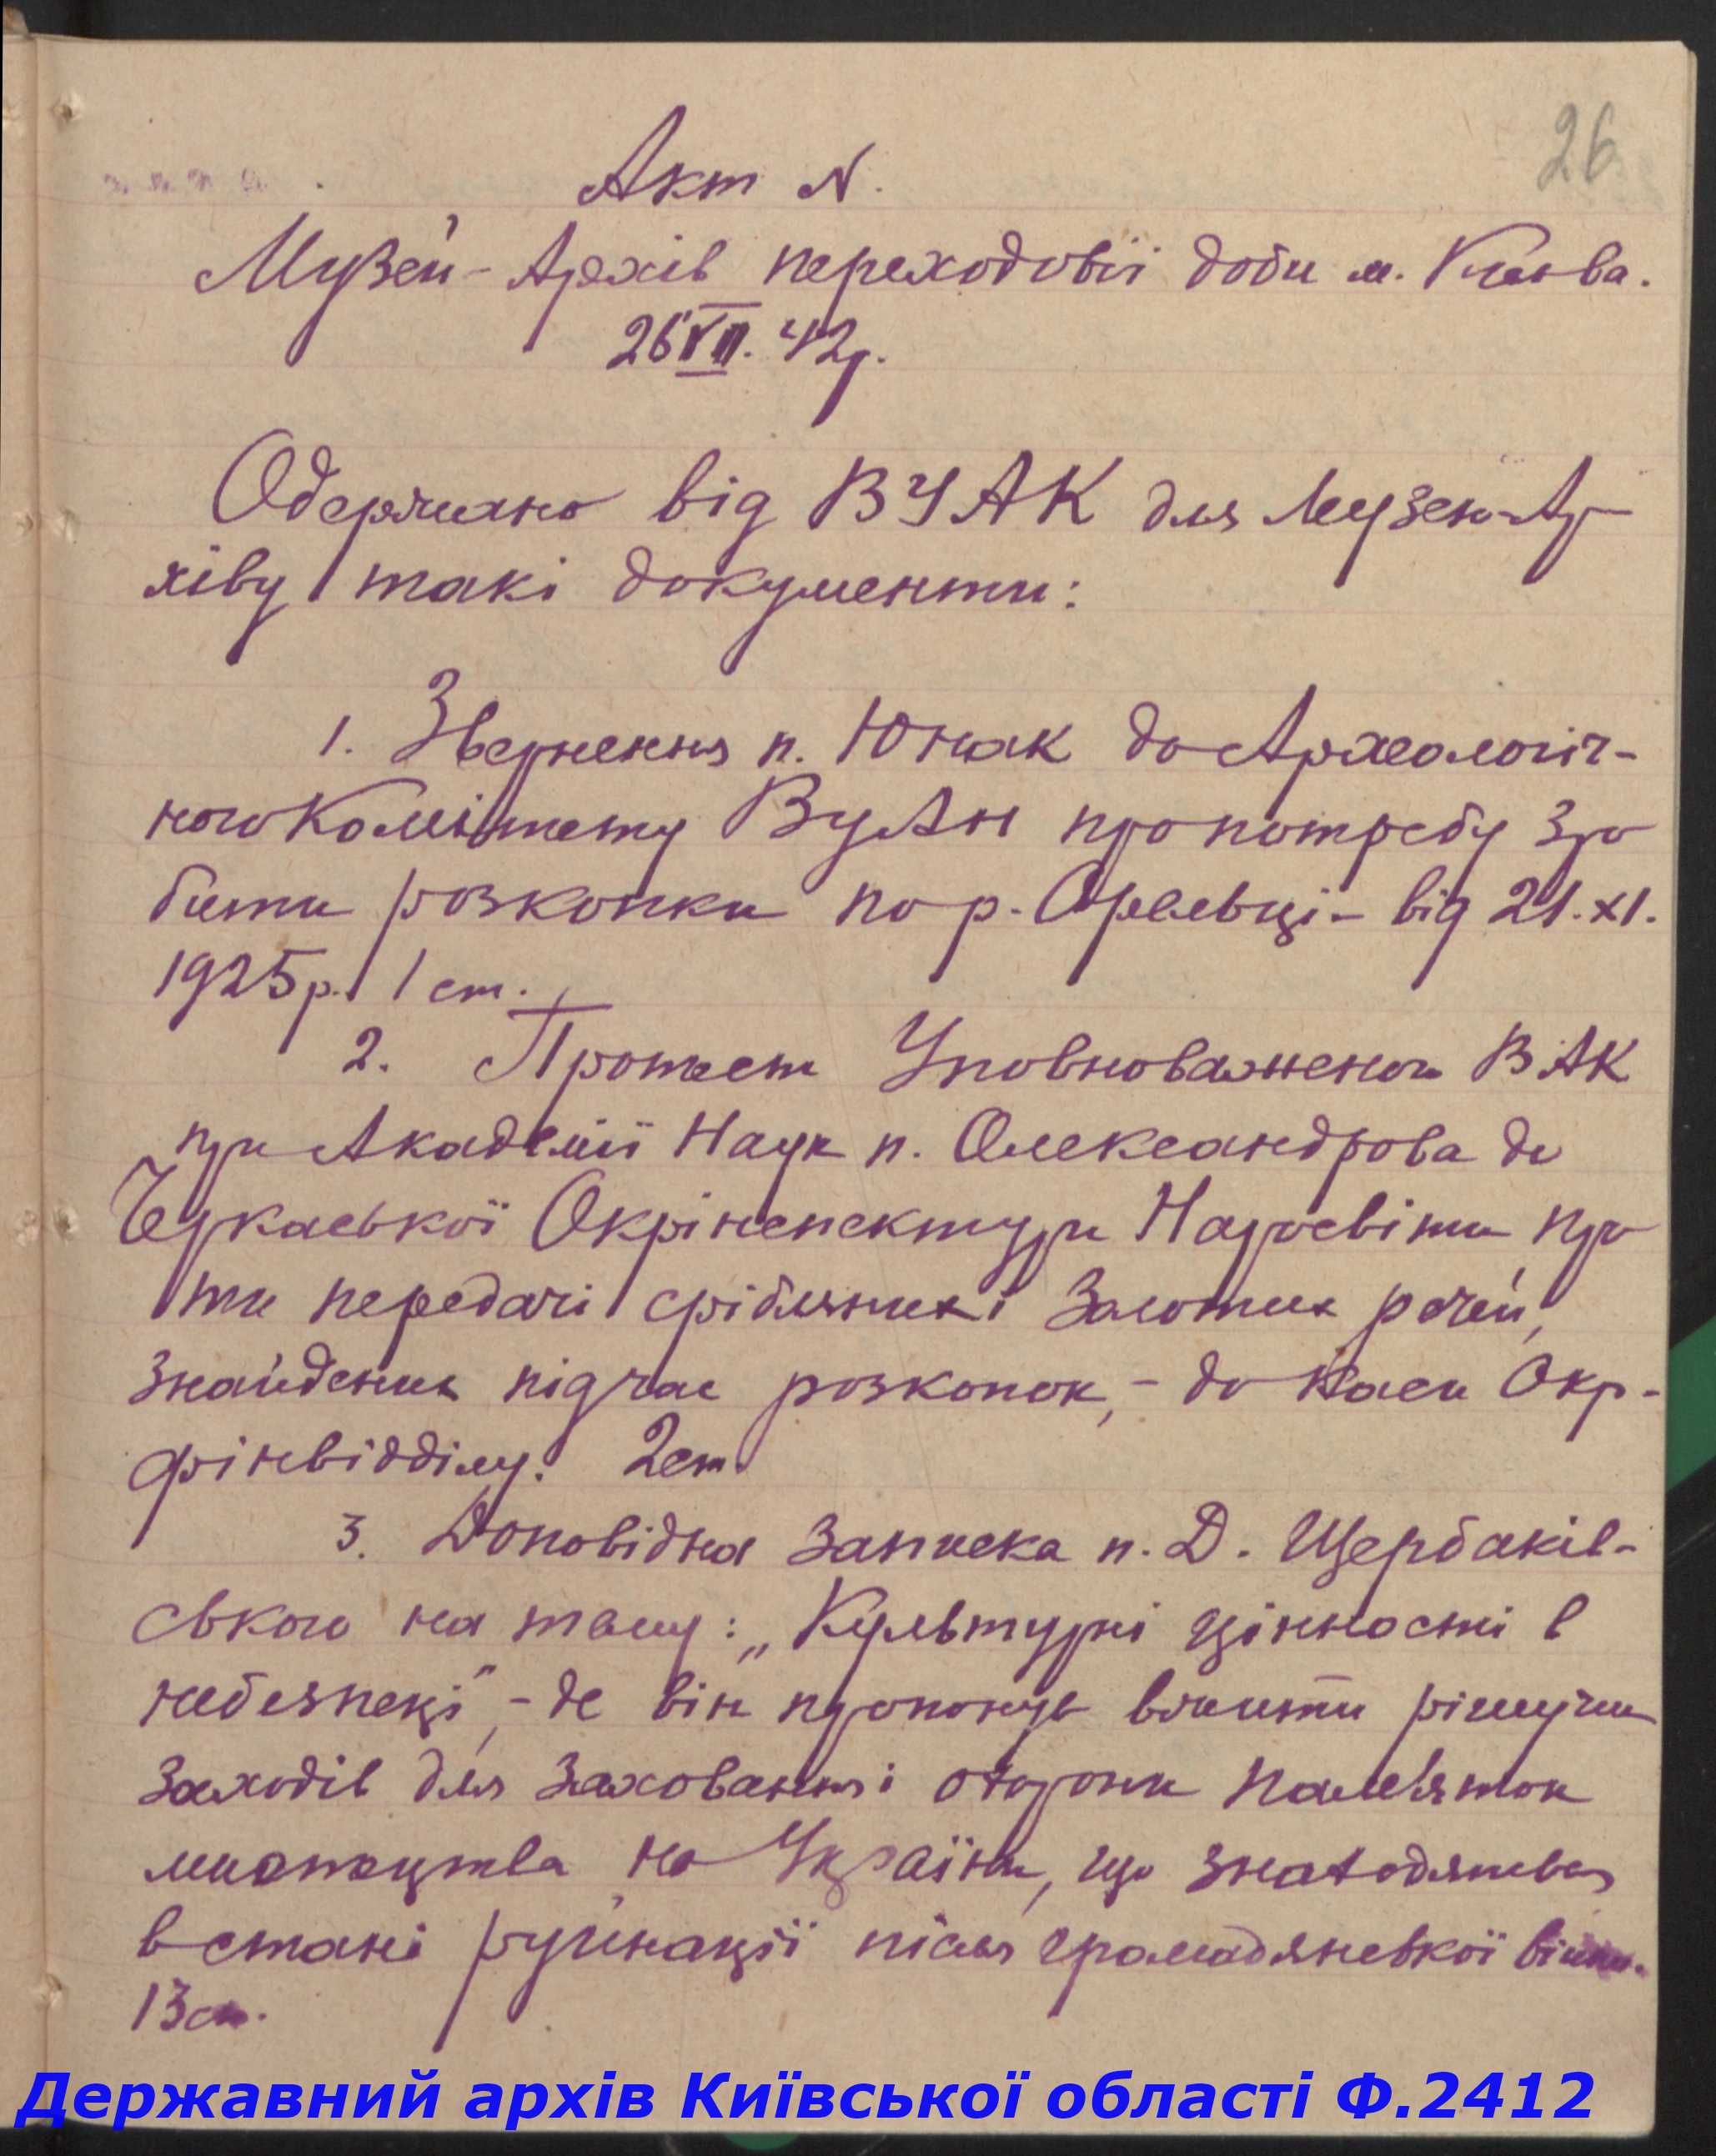 26
Акт N.
Музей-Архів переходової доби м. Києва.
26 VII. 42р.
Одержано від ВУАК для Музею-Ар
хіву такі документи:
1. Звернення п. Юнак до Археологіч-
ного Комітету ВУАН про потребу зро
бити розкопки по р. - від 21.XI.
1925р. 1 ст.
2. Протест Уповноваженого ВАК
при Академії Наук п. Олександрова до
Черкаської Окрінспектури Наросвіти про
ти передачі срібляних і золотих речей,
знайдених підчас розкопок, - до каси Окр-
фінвідділу. 2 ст.
3. Доповідна записка п. Д. Щербаків-
ського на тему: „Культурні цінності в
небезпеці", - де він пропонує вжити рішучих
заходів для заховання і охорони памяток
мистецтва на Україні, що знаходяться
в стані руйнації після громадянської війни.
13 ст.
Державний архів Київської області Ф.2412